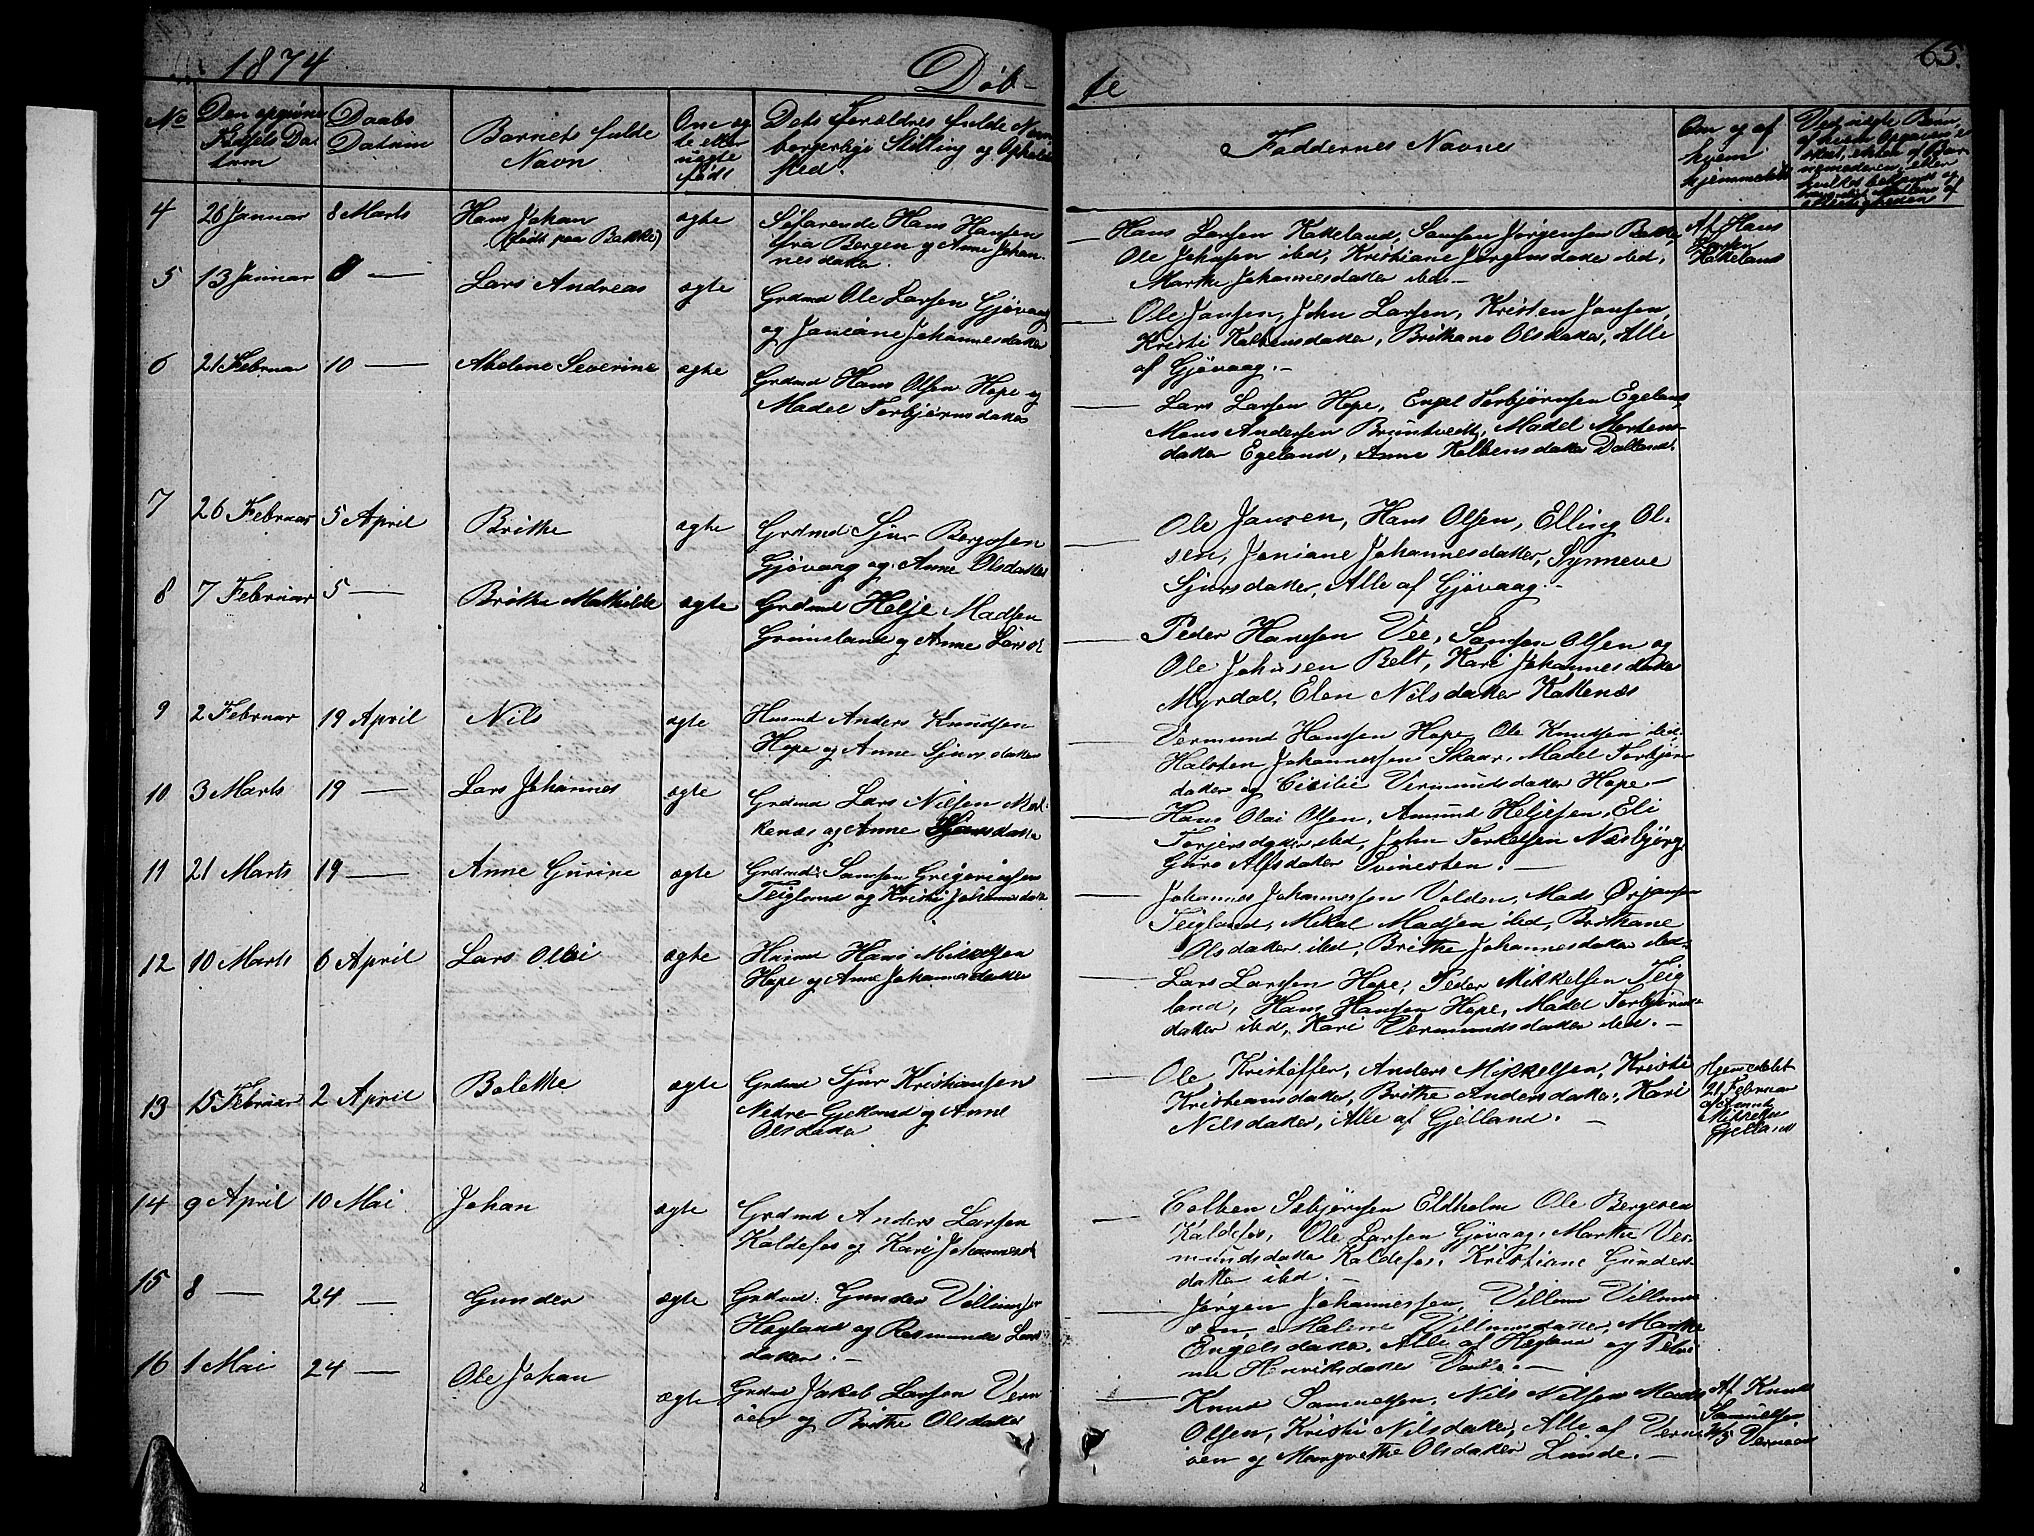 1874
Døb-
te
65.
No
Den opgivne
Fødsels Da-
tum
Daabs
Datum
Barnets fulde
Navn
Om æg-
te eller
uægte
født
Dets Forældres fulde Navn
borgerlige Stilling og Opholds
sted.
Faddernes Navne
Om og af
hvem
hjemmedøbt
4
26 Januar
8 Marts
Hans Johan
(født paa Bakke)
ægte
Søfarende Hans Hansen
fra Bergen og Anne Johan-
nesdatter.
Hans Larsen Kakeland, Samson Jørgensen Bakke,
Ole Johnsen ibd, Kristiane Jørgensdatter ibd,
Marthe Johannesdatter ibd.—
Af Hans
Larsen
5
13 Januar
8 —
Lars Andreas
ægte
Grdmd Ole Larsen Gjøvaag
og Janiane Johannesdatter
Ole Jansen, John Larsen, Kristen Jansen,
Kristi Kolbensdatter, Brithane Olsdatter, Alle
af Gjøvaag.—
6
21 Februar
10 —
Abelone Severine
ægte
Grdmd Hans Olsen Hope og
Madel Torbjørnsdatter
Lars Larsen Hope, Engel Torbjørnsen Egeland,
Mons Andersen Bruntvedt, Madel Mortens-
datter Egeland, Anne Kolbensdatter Dalland.
7
26 Februar
5 April
Brithe
ægte
Grdmd Sjur Bergesen
Gjøvaag og Anne Olsdatter
Ole Jansen, Hans Olsen, Elling Ol-
sen, Janiane Johannesdatter, Synneve
Sjursdatter, Alle af Gjøvaag.—
8
7 Februar
5 —
Brithe Mathilde
ægte
Grdmd Helje Madsen
Grimeland og Anne Larsd
Peder Hansen Vee, Samson Olsen og
Ole Johnsen Belt, Kari Johannesdatter
Myrdal, Elen Nilsdatter Kattenæs
9
2 Februar
19 April
Nils
ægte
Husmd Anders Knudsen
Hope og Anne Sjursdatter
Vermund Hansen Hope, Ole Knudsen ibd,
Halsten Johannessen Skaar, Madel Torbjørns-
datter og Cicilie Vermundsdatter Hope—
10
3 Marts
19 —
Lars Johannes
ægte
Grdmd Lars Nilsen
kenæs og Anne
Hans Olai Olsen, Amund Heljesen, Eli
Torjersdatter ibd, John Torkelsen Næsbjørg
Guro Alfsdatter Svinesten.—
11
21 Marts
19 —
Anne Gurine
ægte
Grdmd. Samson Grigoriusen
Teigland og Kristi Johannesdatter
Johannes Johannessen Valden, Mads Ørjansen
Teigland, Mikal Madsen ibd, Brithane
Olsdatter ibd, Brithe Johannesdatter ibd.
12
10 Marts
6 April
Lars Olai
ægte
Husmd Hans Mikkelsen
Hope og Anne Johannesdatter
Lars Larsen Hope, Peder Mikkelsen Teig
land, Hans Hansen Hope, Madel Torbjørns-
datter ibd, Kari Vermundsdatter ibd.—
13
15 Februar
2 April
Bolette
ægte
Grdmd Sjur Kristiansen
Nedre-Gjelland og Anne
Olsdatter
Ole Kristoffer, Anders Mikkelsen, Kristi
Kristiansdatter, Brithe Andersdatter, Kari
Nilsdatter, Alle af Gjelland.—
Hjemmedøbt
21 Februar
af Anders
Mikkelsen
Gjelland
14
9 April
10 Mai
Johan
ægte
Grdmd Anders Larsen
Kaldefos og Kari Johannesd
Colben Sæbjørnsen Eldholm Ole Bergesen
Kaldefos, Ole Larsen Gjøvaag, Marthe Ver-
mundsdatter Kaldefos, Kristiane Gunders-
datter ibd.—
15
8 —
24 —
Gunder
ægte
Grdmd. Gunder Villumsen
Høgland og Rasmunde Lars-
datter.—
Jørgen Johannessen, Villum Villum-
sen, Maline Villumsdatter, Marthe
Engelsdatter, Alle af Høgland og Petri-
ne Henriksdatter
16
1 Mai
24 —
Ole Johan
ægte
Grdmd Jakob Larsen Vern
øen og Brithe Olsdatter
Knud Samuelsen, Nils Nilsen Mads
Olsen, Kristi Nilsdatter, Alle af Vern
øen og Margrethe Olsdatter Lunde.—
Af Knud
Samuelsen
Vernøen